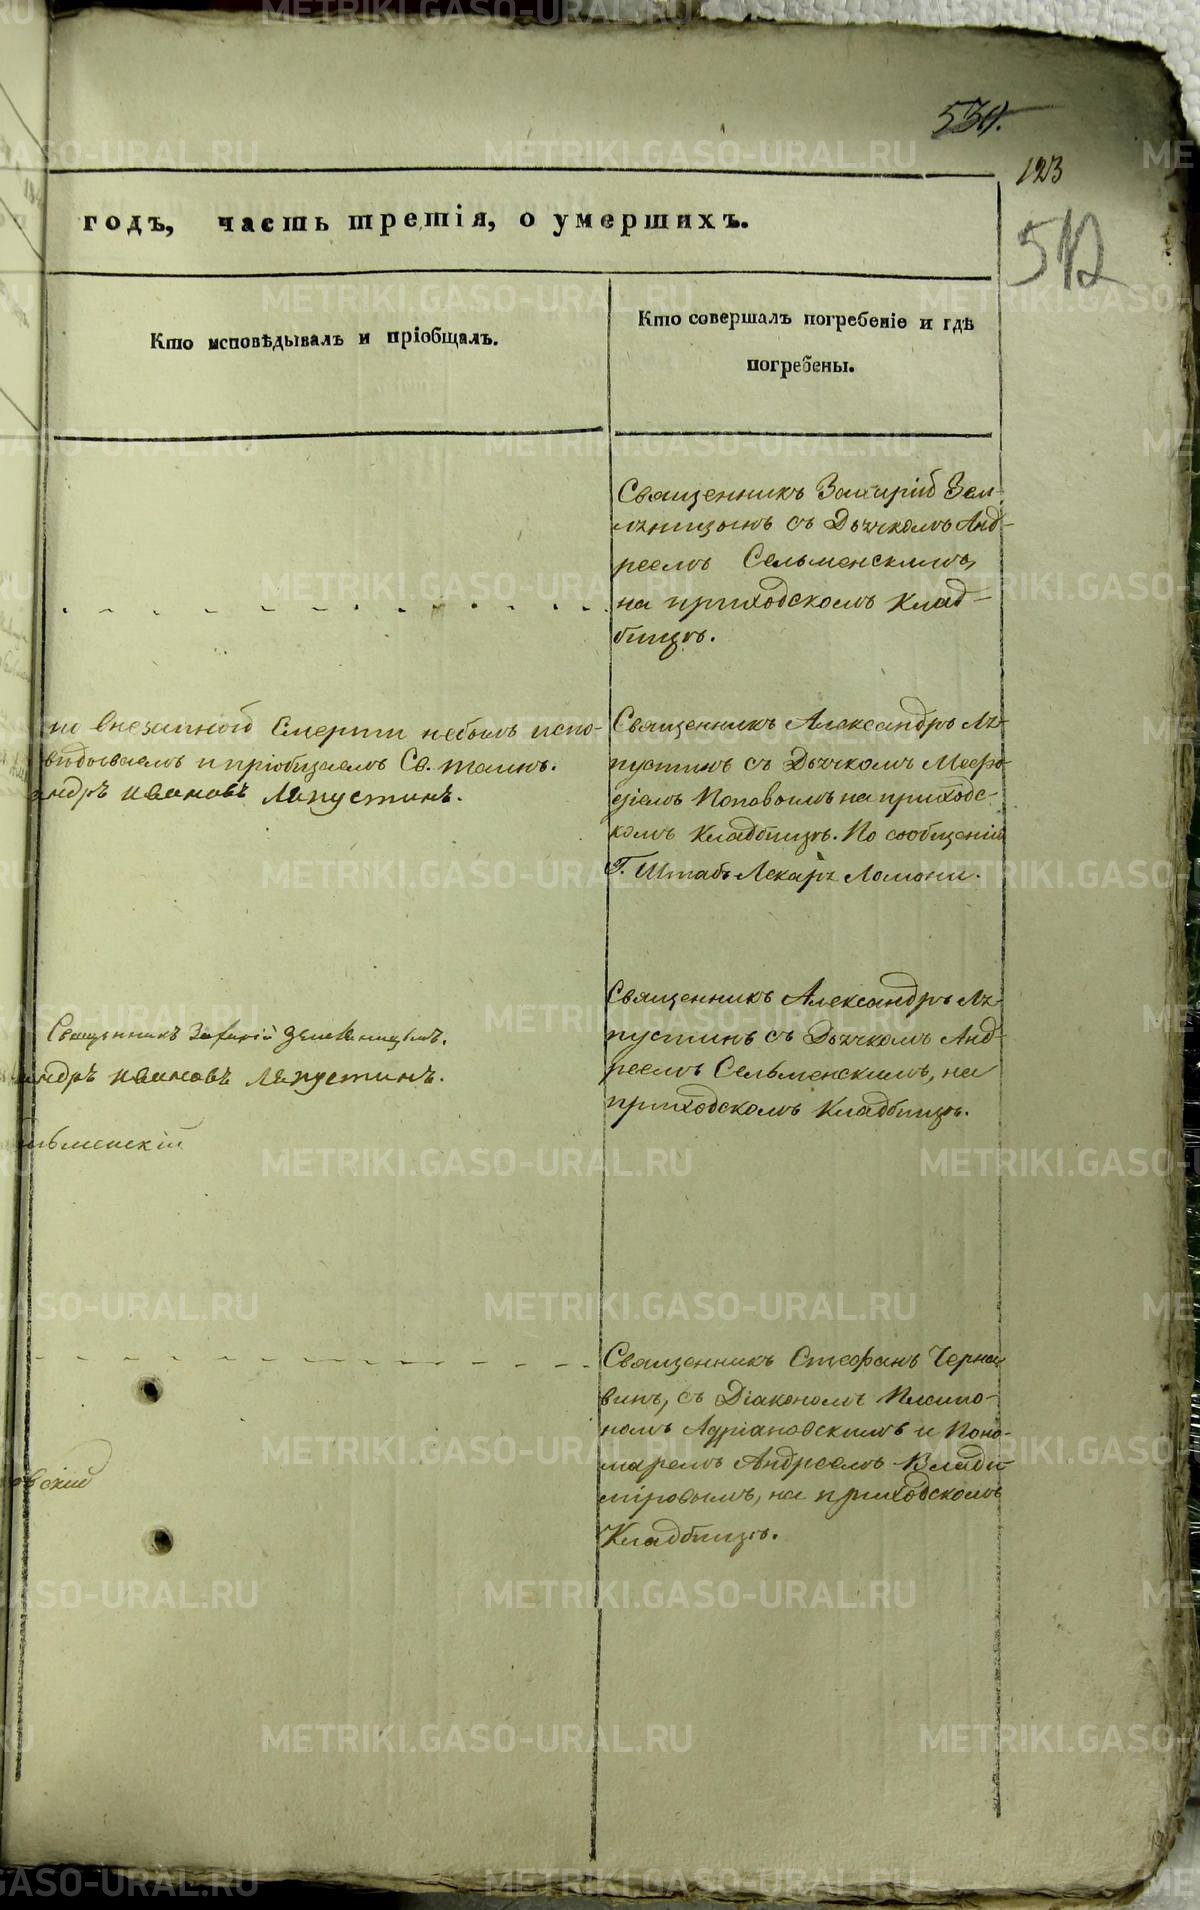 530.
123
512
годъ, часть третія, о умершихъ.
Кто исповѣдывалъ и пріобщалъ.
Кто совершалъ погребеніе и гдѣ
погребены.
Священникъ Захарій Зем-
ляницынъ съ Дьячкомъ Анд-
реемъ Сельменскимъ,
на приходскомъ клад-
бищѣ.
по внезапной смерти небылъ испо-
вѣдываемъ и пріобщаемъ Св. таинъ.
андръ Ивановъ Ляпустинъ.
Священникъ Александръ Ля-
пустинъ съ Дьячкомъ Меѳо-
діемъ Поповымъ на приходс-
комъ кладбищѣ. По сообщенію
Г. Штабъ Лекаря
Священникъ Захарій Земляницынъ.
андръ Ивановъ Ляпустинъ.
льменскій
Священникъ Александръ Ля-
пустинъ съ Дьячкомъ Анд-
реемъ Сельменскимъ, на
приходскомъ кладбищѣ.
Священникъ Стефанъ Черна-
винъ, съ Діакономъ
Адріановскимъ и Поно-
маремъ Андреемъ Влади-
міровымъ, на приходскомъ
Кладбищѣ.
овскій
METRIKI.GASO-URAL.RU